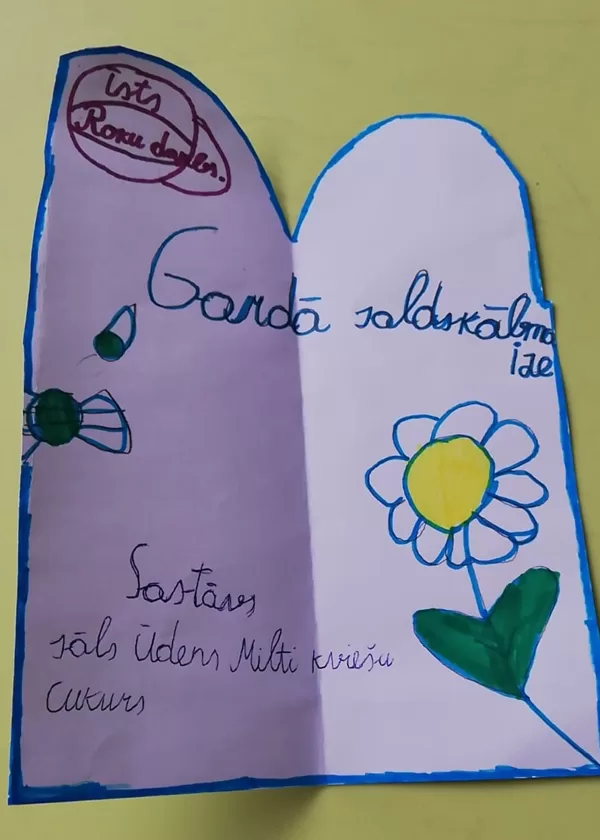 īsts
Roku darbs.
Gardā saldskābma
ize
Sastāvs
sāls Ūdens Milti kviešu
Cukurs